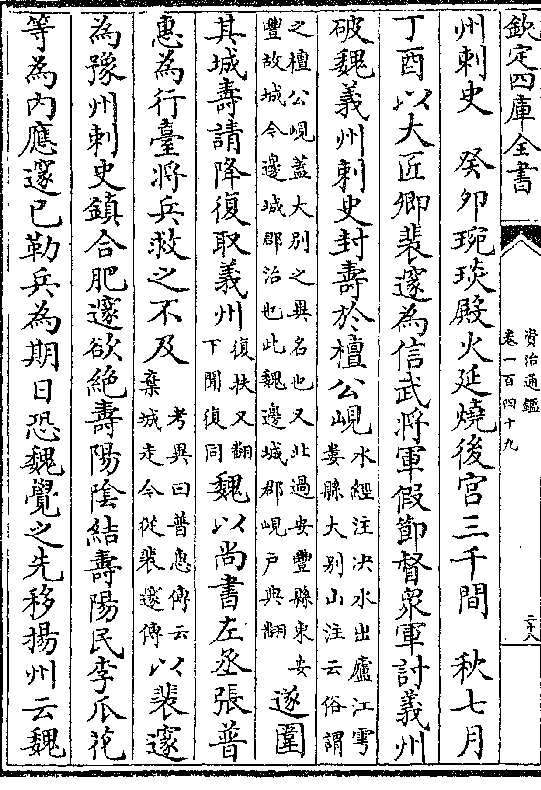 欽定四庫全書
資治通鑑
卷一百四十九
二十八
州刺史　癸卯琬琰殿火延燒後宫三千間　秋七月
丁酉以大匠卿裴邃為信武將軍假節督衆軍討義州
破魏義州刺史封壽於檀公峴
水經注决水出廬江雩
婁縣大别山注云俗謂
之檀公峴蓋大别之異名也又北過安豐縣東安
豐故城今邊城郡治也此魏邊城郡峴戶典翻
遂圍
其城壽請降復取義州
復扶又翻
下聞復同
魏以尚書左丞張普
惠為行臺將兵救之不及
考異曰普惠傳云
棄城走今從裴邃傳
以裴邃
為豫州刺史鎮合肥邃欲絶壽陽陰結壽陽民李瓜花
等為内應邃已勒兵為期日恐魏覺之先移揚州云魏